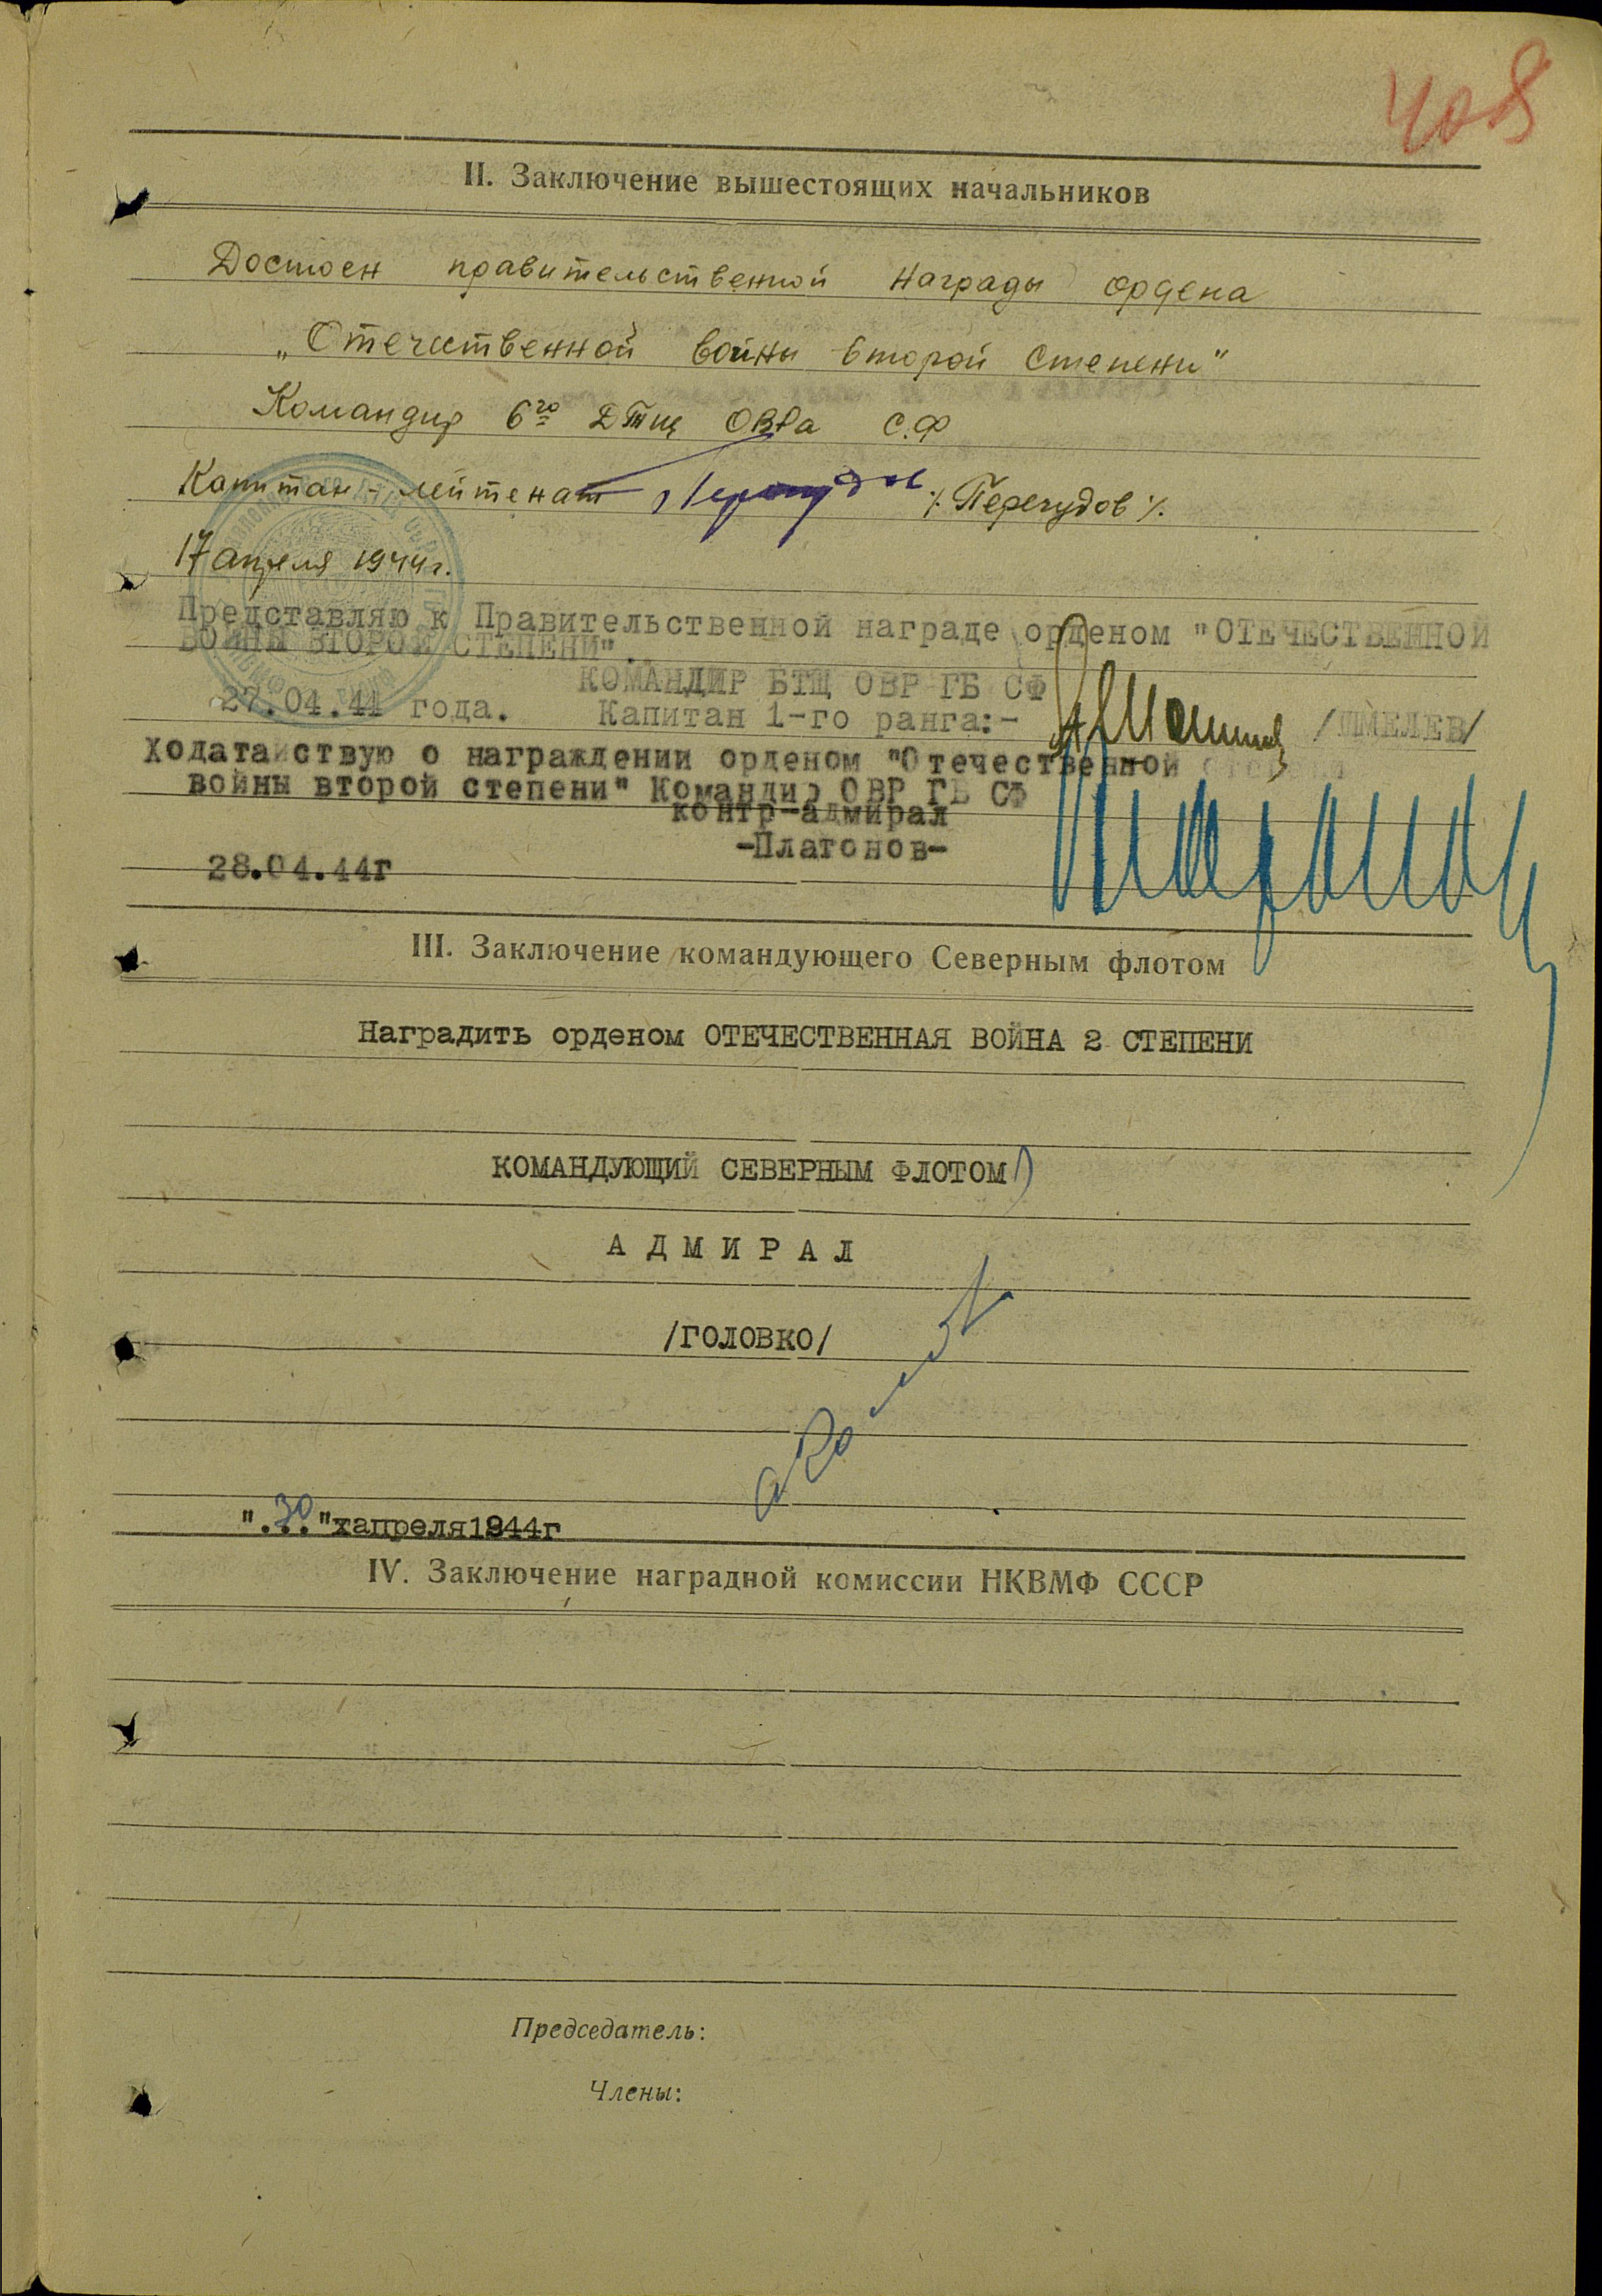 408
II. Заключение вышестоящих начальников
Достоен правительственной награды ордена
„Отечественной войны второй степени"
Командир 6го ДТщ ОВРа С.Ф
Капитан-лейтенант ٪ Перегудов ٪.
17 апреля 1944г.
Представляю к Правительственной награде орденом "ОТЕЧЕСТВЕННОЙ
ВОЙНЫ ВТОРОЙ СТЕПЕНИ".
КОМАНДИР БТЩ ОВР ГБ СФ
27.04.44 года. Капитан 1-го ранга:- /ШМЕЛЕВ/
Ходатайствую о награждении орденом "Отечественной
войны второй степени" Командир ОВР ГБ СФ
контр-адмирал
-Платонов-
28.04.44г
III. Заключение командующего Северным флотом
Наградить орденом ОТЕЧЕСТВЕННАЯ ВОЙНА 2 СТЕПЕНИ
КОМАНДУЮЩИЙ СЕВЕРНЫМ ФЛОТОМ
АДМИРАЛ
/ГОЛОВКО/
".30."апреля1944г
IV. Заключение наградной комиссии НКВМФ СССР
Председатель:
Члены: